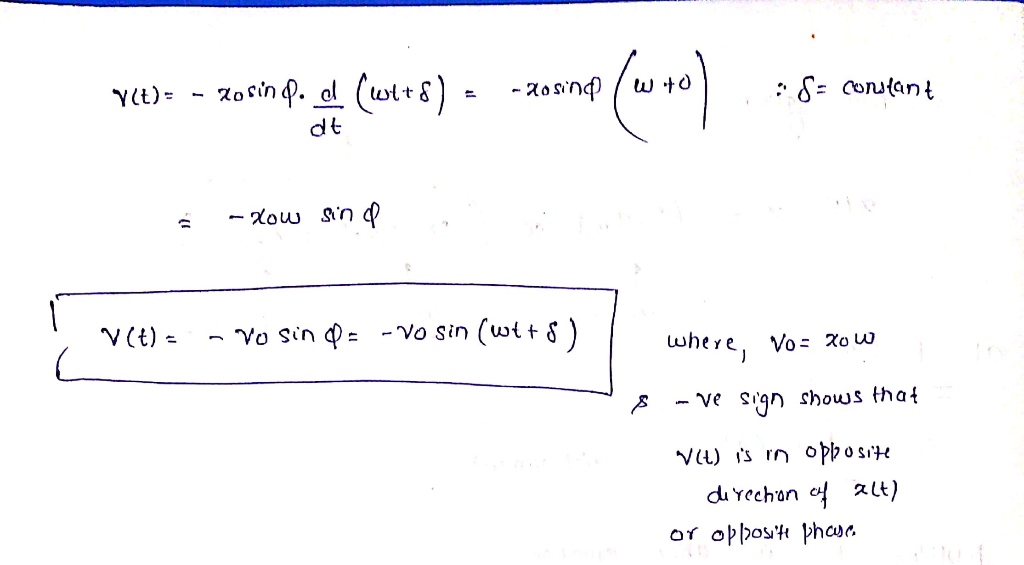 v(t) = - x0 sin φ. d/dt (ωt + δ) = - x0 sin φ (ω + 0) ∵ δ = constant
= - x0ω sin φ
v(t) = - v0 sin φ = - v0 sin (ωt + δ)
where, v0 = x0ω
& -ve sign shows that
v(t) is in opposite
direction of x(t)
or opposite phase